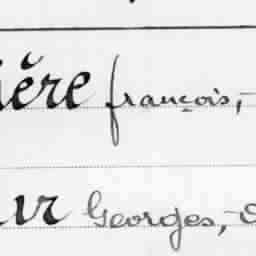 ière françois,-
ur Georges,-